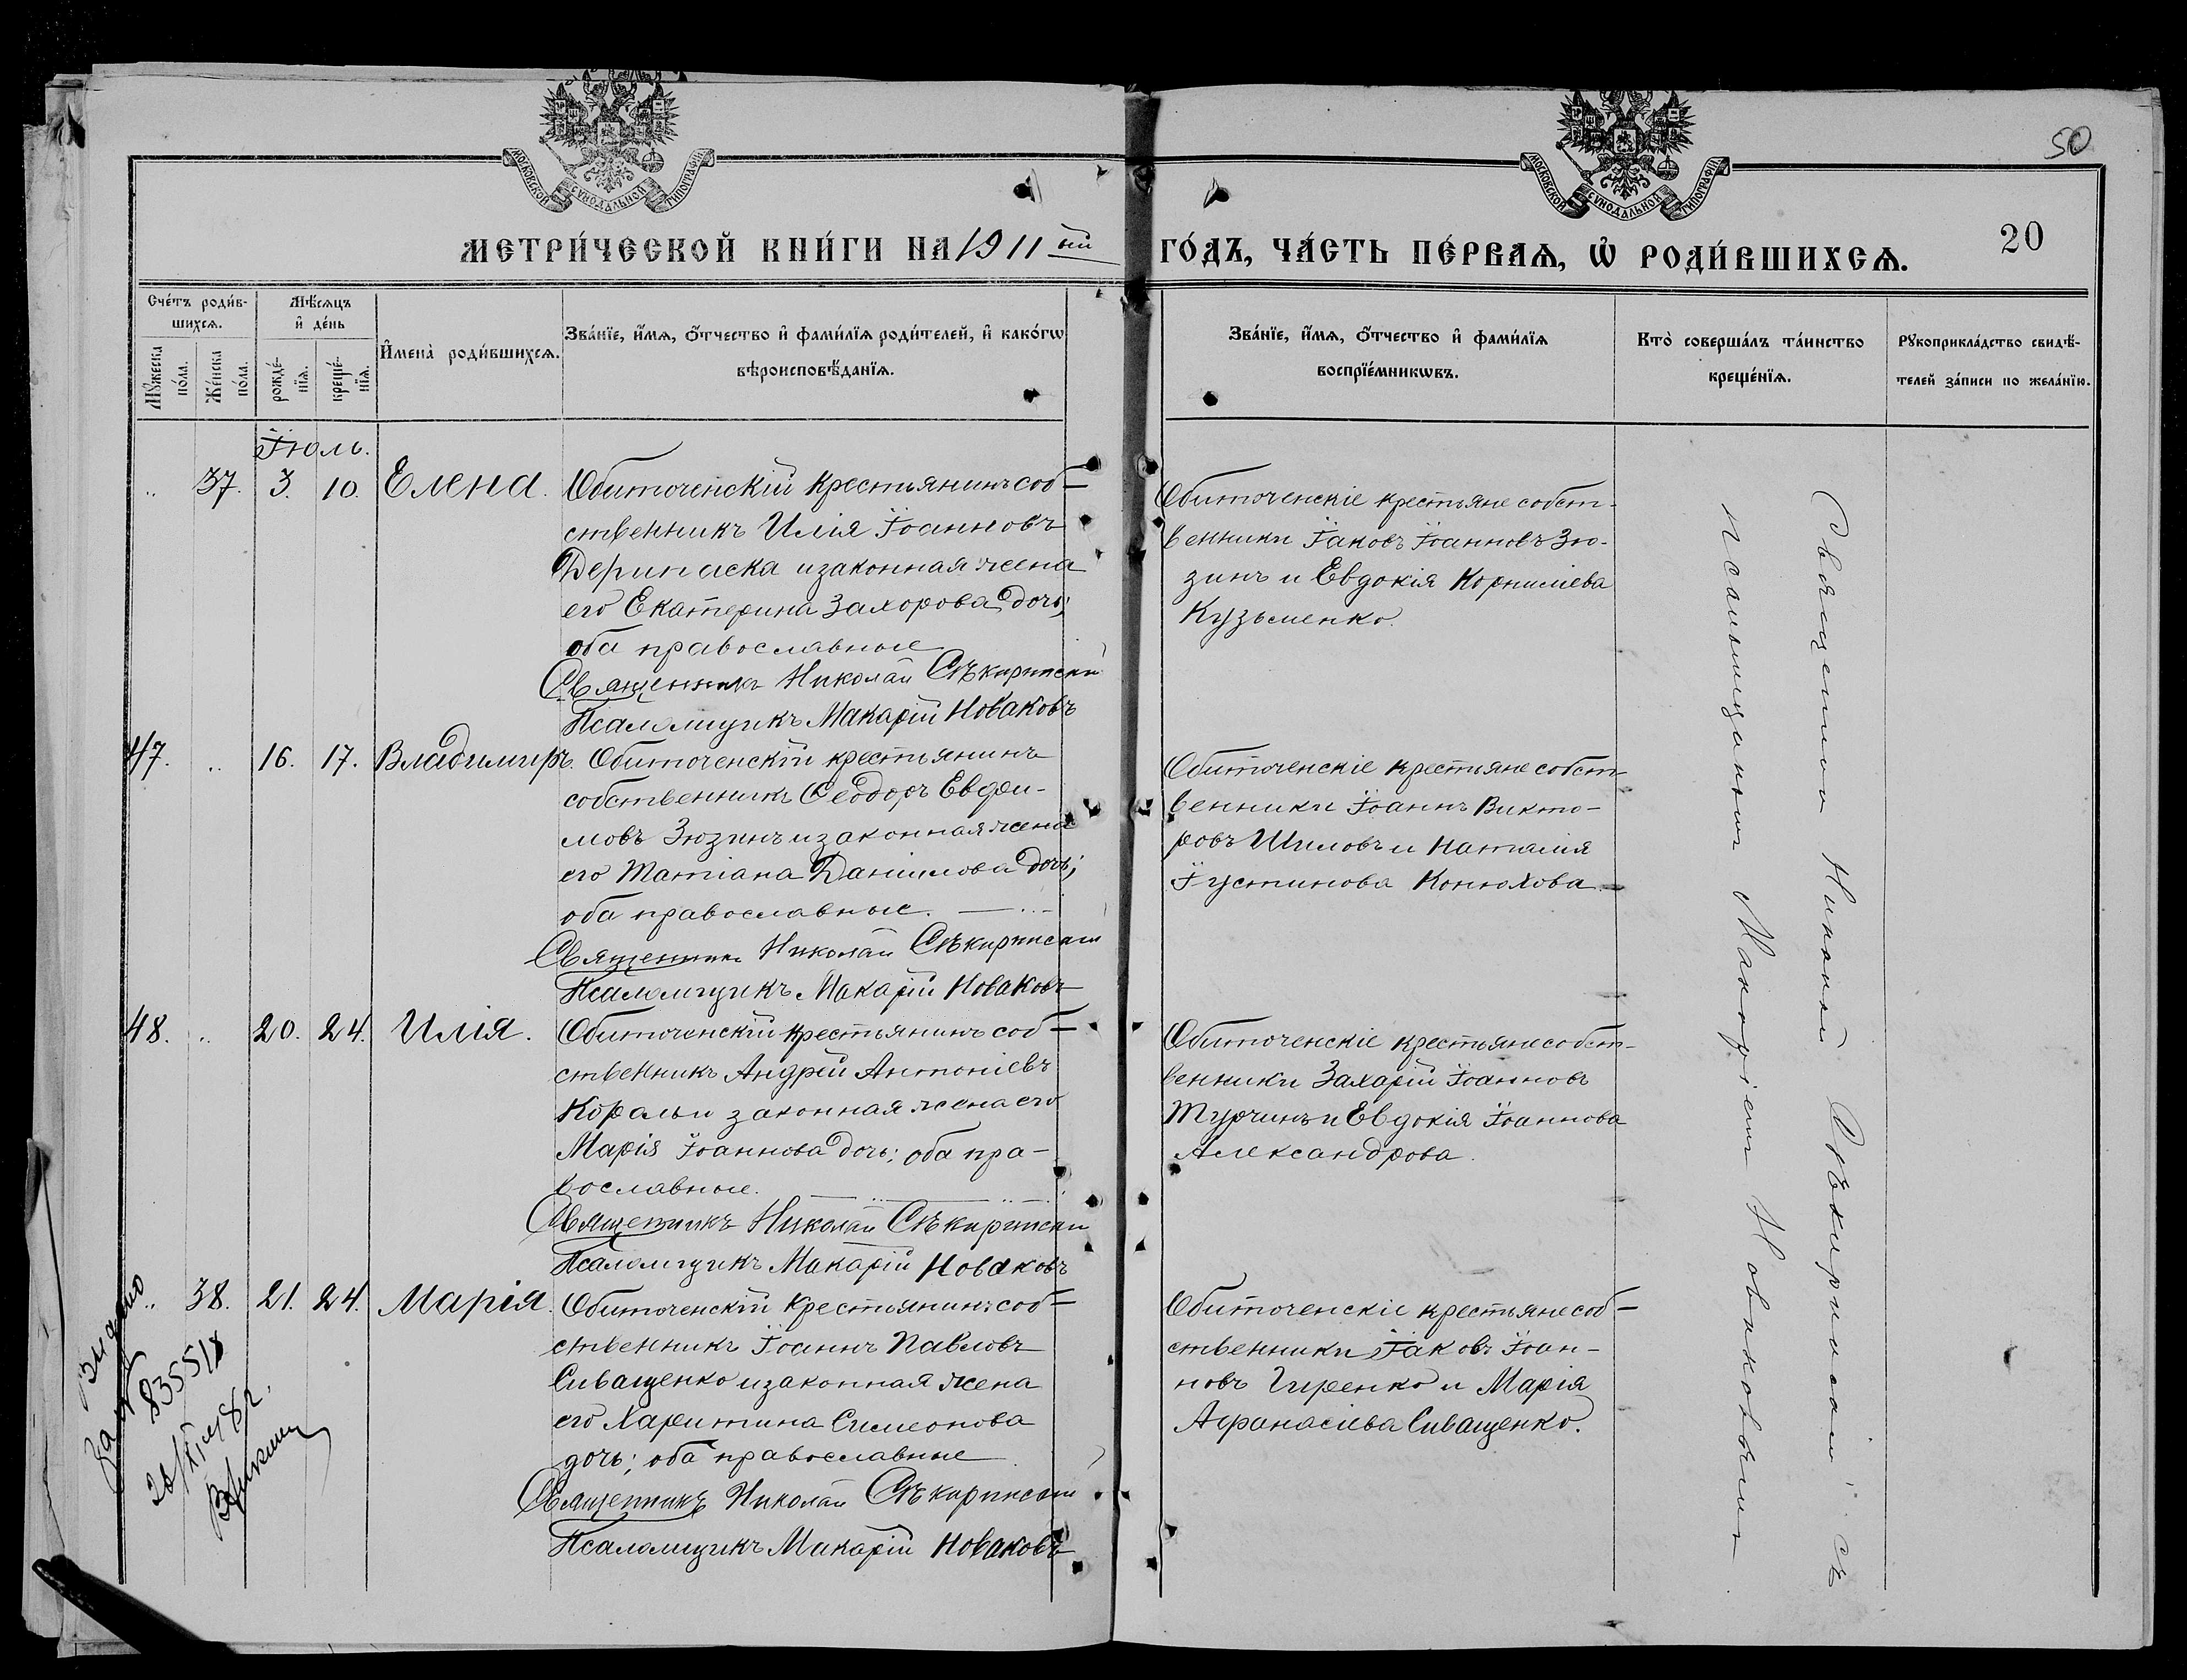 50
МОСКОВСКОЙ СѴНОДАЛЬНОЙ ТИПОГРАФІИ
МОСКОВСКОЙ СѴНОДАЛЬНОЙ ТИПОГРАФІИ
МЕТРИ́ЧЕСКОЙ КНИ́ГИ НА 1911 ый ГО́ДЪ, ЧА́СТЬ ПЕ́РВАѦ, Ѡ РОДИ́ВШИХСѦ.
20
Сче́тъ роди́в-
шихсѧ.
Мѣ́сѧцъ
и҆ де́нь
Мꙋ́жеска
по́ла.
Же́нска
по́ла.
рожде́-
нїѧ.
креще́-
нїѧ.
И҆мена̀ роди́вшихсѧ.
Зва́нїе, и҆́мѧ, ѻ҆́тчество и҆ фами́лїѧ роди́телей, и҆ како́гѡ
вѣроисповѣ́данїѧ.
Зва́нїе, и҆́мѧ, ѻ҆́тчество и҆ фами́лїѧ
воспрїе́мникѡвъ.
Кто̀ соверша́лъ та́инство
креще́нїѧ.
Рꙋкоприкла́дство свидѣ́-
телей за́писи по жела́нїю.
Іюль.
37. 3. 10. Елена.
Обиточенскій крестьянинъ соб-
ственникъ Илія Іоанновъ
Дерипаска и законная жена
его Екатерина Захорова дочь;
оба православные
Священникъ Николай Сѣкиринскій
Псаломщикъ Макарій Новаковъ
Обиточенскіе крестьяне собст-
венники Іаковъ Іоанновъ Зю-
зинъ и Евдокія Корниліева
Кузьменко.
47. 16. 17. Владимиръ.
Обиточенскій крестьянинъ
собственникъ Ѳеодоръ Евфи-
мовъ Зюзинъ и законная жена
его Татіана Даніилова дочь;
оба православные.
Священникъ Николай Сѣкиринскій
Псаломщикъ Макарій Новаковъ
Обиточенскіе крестьяне собст-
венники Іоаннъ Викто-
ровъ Шиловъ и Наталія
Іустинова Конюхова
48. 20. 24. Илія.
Обиточенскій крестьянинъ соб-
ственникъ Андрей Антоніевъ
Король и законная жена его
Марія Іоаннова дочь; оба пра-
вославные.
Священникъ Николай Сѣкиринскій
Псаломщикъ Макарій Новаковъ
Обиточенскіе крестьяне собст-
венники Захарій Іоанновъ
Турчинъ и Евдокія Іоаннова
Александрова.
38. 21. 24. Марія.
Обиточенскій крестьянинъ соб-
ственникъ Іоаннъ Павловъ
Сиващенко и законная жена
его Харитина Симеонова
дочь; оба православные
Священникъ Николай Сѣкиринскій
Псаломщикъ Макарій Новаковъ
Обиточенскіе крестьяне соб-
ственники Іаковъ Іоан-
новъ Гиренко и Марія
Аѳанасіева Сиващенко.
Священник Николай Сѣкиринскій съ
псаломщиком Макаріем Новаковымъ